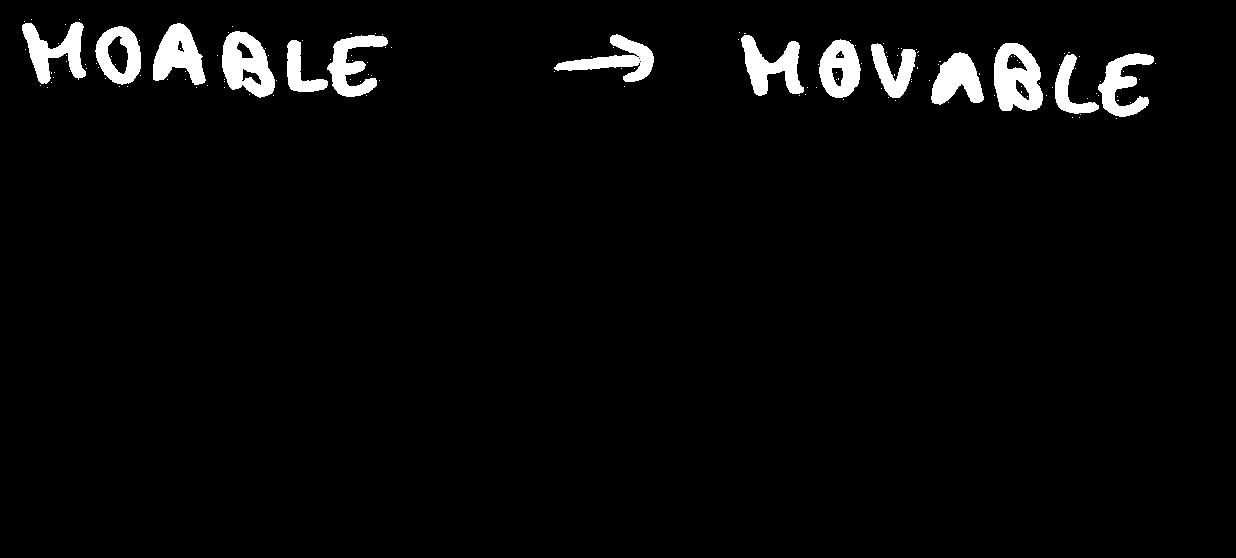 MOABLE → MOVABLE